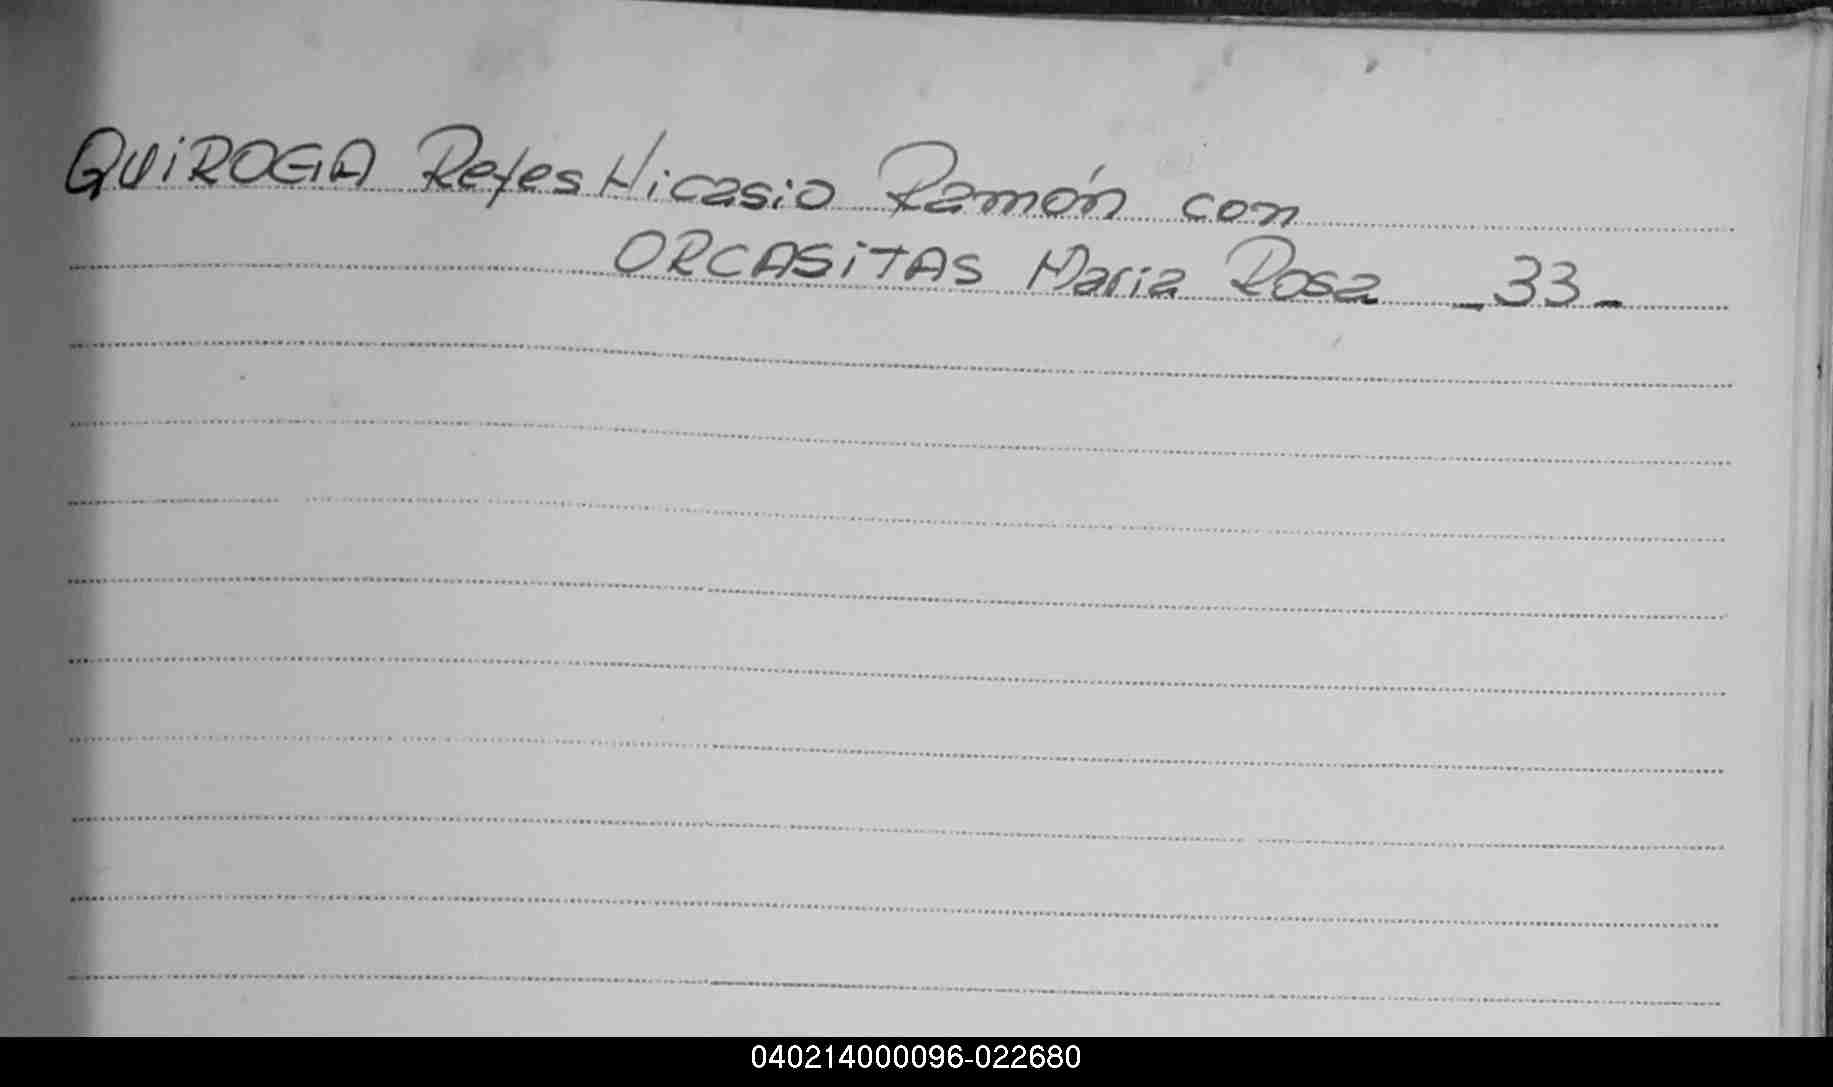 QUIROGA Reyes Nicasio Ramón con
ORCASITAS Maria Rosa _33_
040214000096-022680